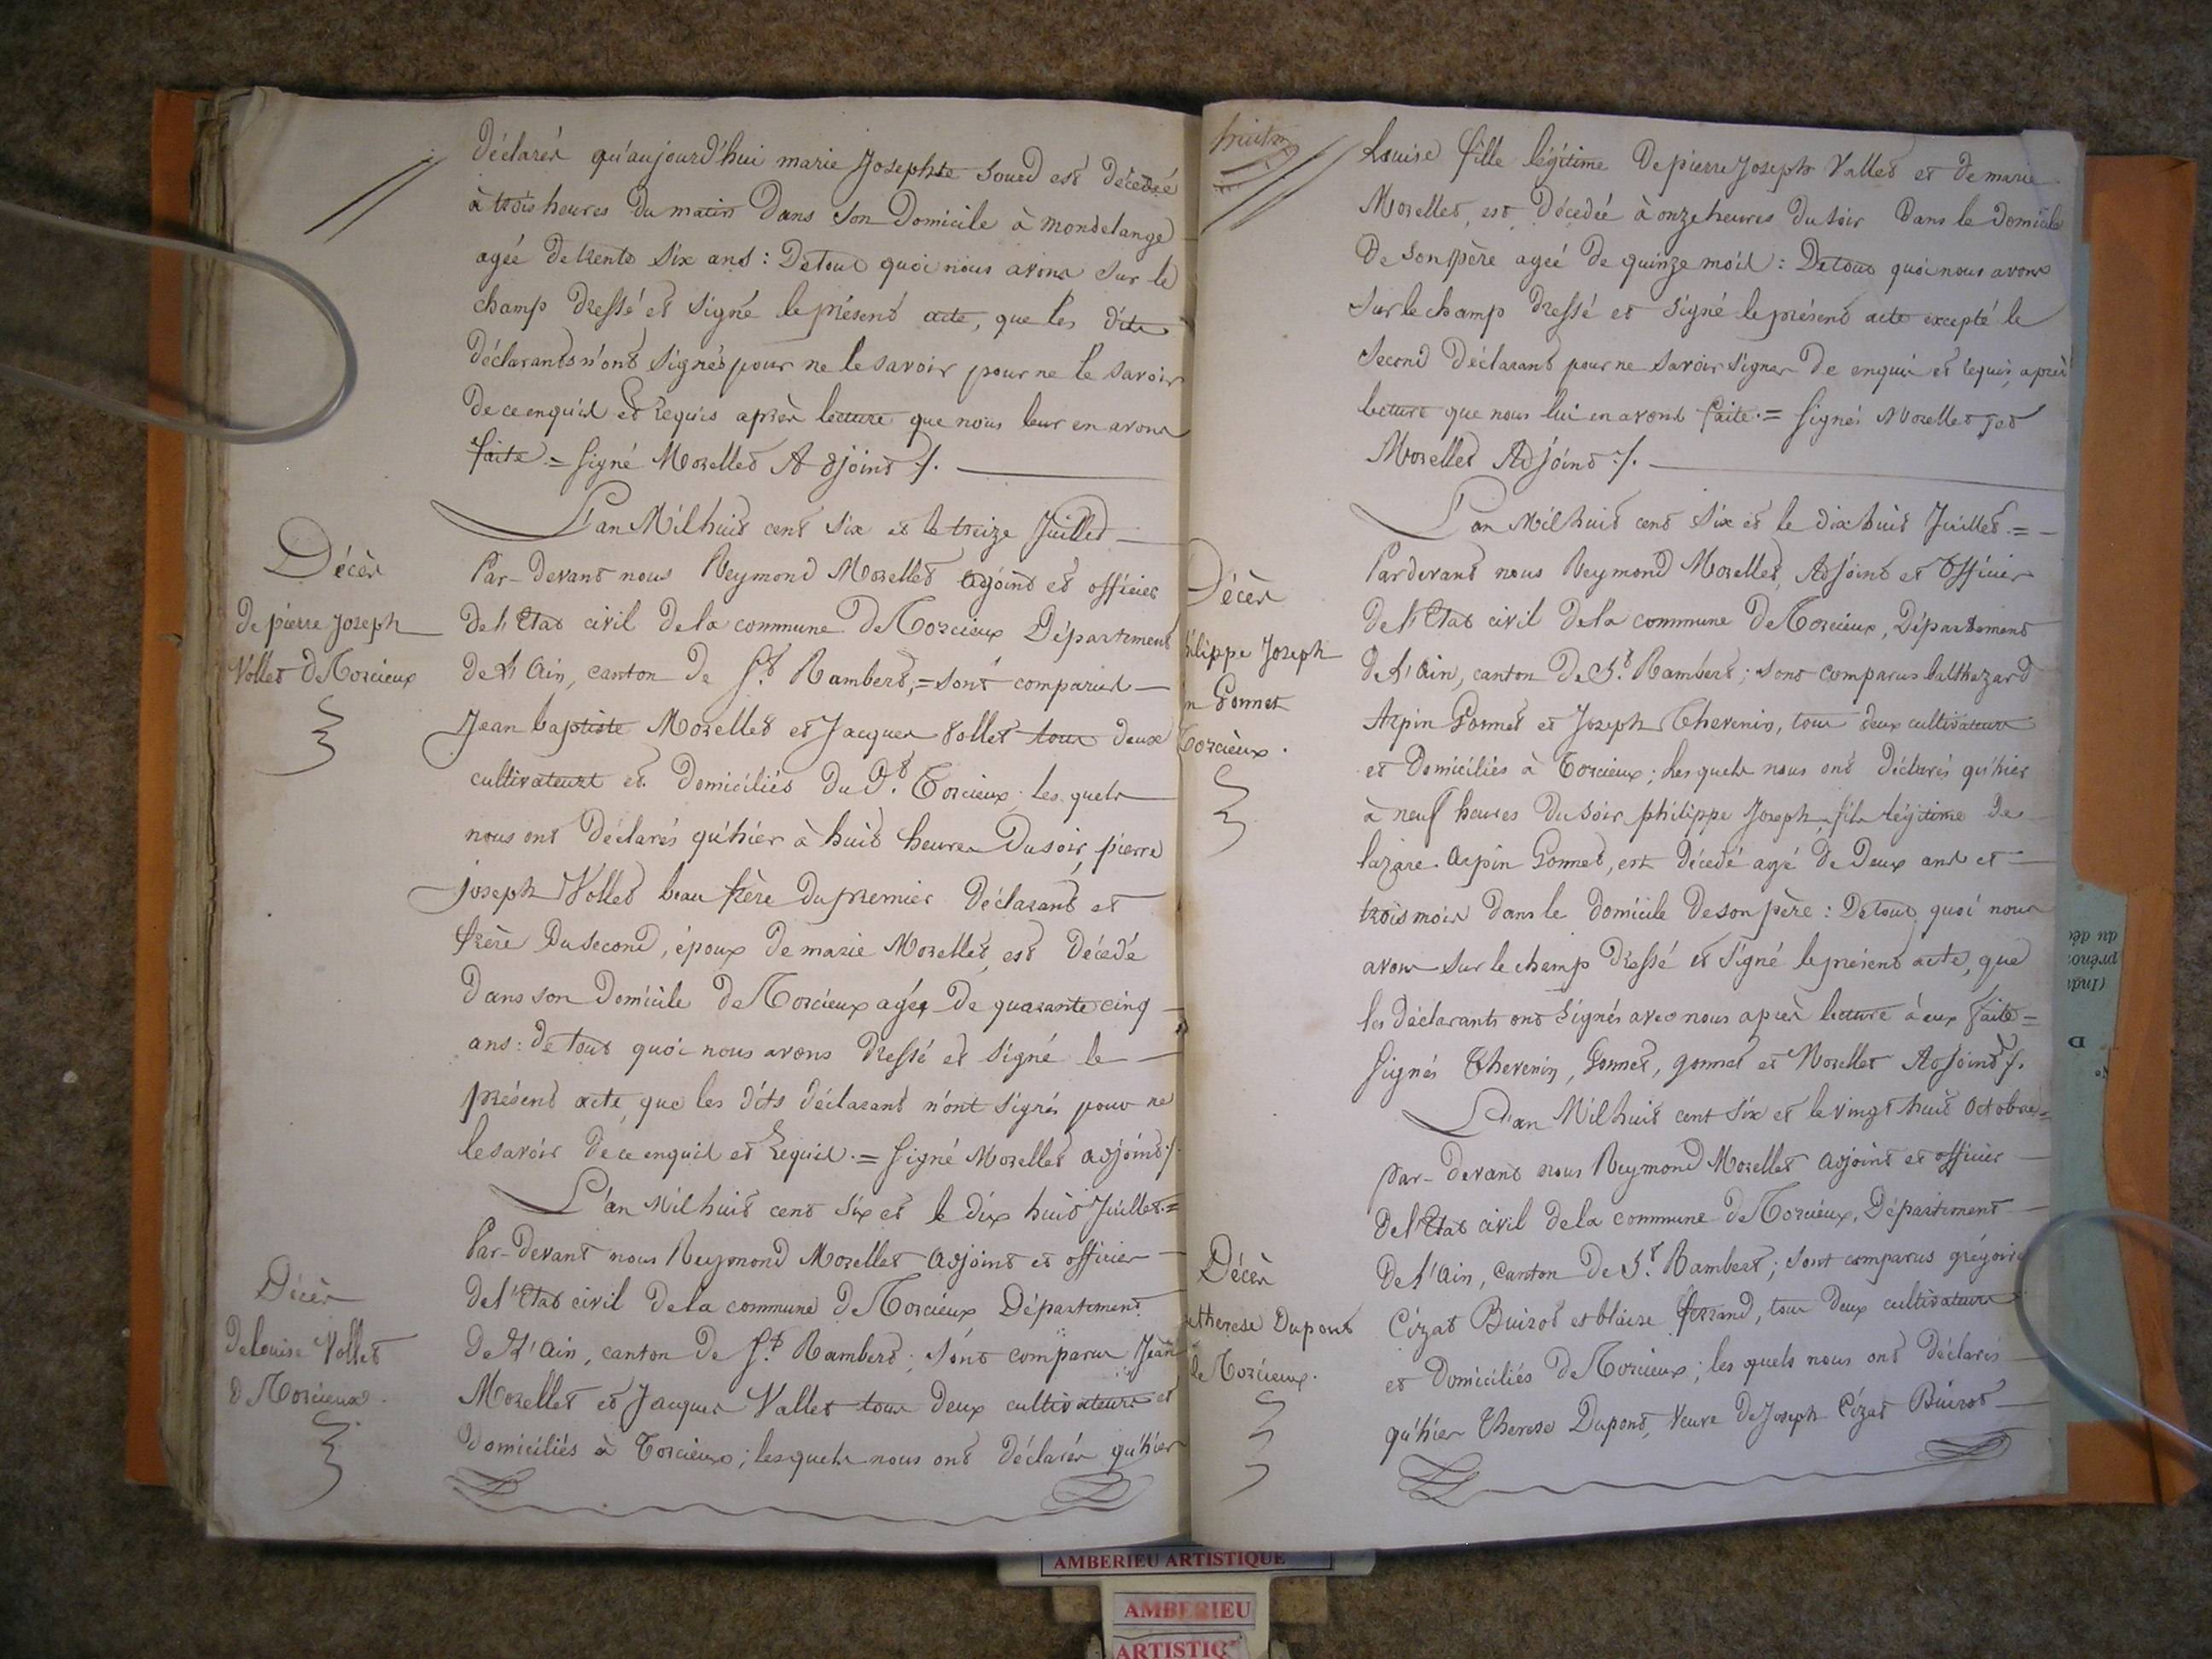 Déclarés qu'aujourd'hui marie Josephte Soued est décédée
à trois heures du matin Dans son Domicile à mondelange
agéé de trente six ans : De tout quoi nous avons sur le
champ dressé et signé le présent acte, que les dits
déclarants n'ont signés pour ne le savoir pour ne le savoir
de ce enquis et requis après lecture que nous leur en avons
faite = signé Morellet Adjoint ./.
L'an Mil huit cent six et le treize Juillet
Décès
de pierre Joseph
Vollet de Torcieux
Par-Devant nous Reymond Morellet adjoint et officier
de l'Etat civil de la commune de Torcieux Département
de l'Ain, canton de St. Rambert, = sont comparus
Jean baptiste Morellet et Jacques Vollet tous deux
cultivateurs et domiciliés du dt. Torcieux ; les quels
nous ont Déclarés qu'hier à huit heures du soir, pierre
joseph Vollet beau frère du premier déclarant et
frère du second, époux de marie Morellet, est décédé
dans son Domicile de Torcieux agé de quarante cinq
ans : de tout quoi nous avons dressé et signé le
présent acte, que les dits déclarant n'ont signés pour ne
le savoir de ce enquis et requis = signé Morellet adjoint ./.
L'an Mil huit cent six et le dix huit Juillet =
Décès
de louise Vollet
de Torcieux.
Par-Devant nous Reymond Morellet Adjoint et officier
de l'Etat civil de la commune de Torcieux Département
de l'Ain, canton de St. Rambert ; sont comparus Jean
Morellet et Jacques Vallet tous deux cultivateurs et
domiciliés à Torcieux ; lesquels nous ont déclarés qu'hier
huit
Louise fille légitime de pierre Joseph Vallet et de marie
Morellet, est décédée à onze heures du soir Dans le domicile
de son père agéé de quinze mois : De tout quoi nous avons
sur le champ dressé et signé le présent acte excepté le
second déclarant pour ne savoir signer de enquis et requis, après
lecture que nous lui en avons faite. = signés Morellet et
Morellet Adjoint ./.
L'an Mil huit cent six et le dix huit Juillet. =
Décès
ilippe Joseph
n Gonnet
Torcieux.
Pardevant nous Reymond Morellet, Adjoint et Officier
de l'Etat civil de la commune de Torcieux, Département
de l'Ain, canton de St. Rambert ; sont comparus balthazard
Arpin Gonnet et Joseph Thevenin, tous deux cultivateurs
et domiciliés à Torcieux ; lesquels nous ont déclarés qu'hier
à neuf heures du soir philippe Joseph, fils légitime de
lazare Arpin Gonnet, est décédé agé de deux ans et
trois mois dans le domicile de son père : De tout quoi nous
avons sur le champ dressé et signé le présent acte, que
les déclarants ont signés avec nous après lecture à eux faite =
signés Thevenin, Gonnet, gonnet et Morellet Adjoint ./.
L'an Mil huit cent six et le vingt huit Octobre =
Décès
therese Dupont
de Torcieux.
par-Devant nous Reymond Morellet adjoint et officier
de l'Etat civil de la commune de Torcieux, Département
de l'Ain, canton de St. Rambert ; sont comparus grégoire
Cizat Buirot et blaise ferrand, tous deux cultivateurs
et domiciliés de Torcieux ; les quels nous ont déclarés
qu'hier Therese Dupont, Veuve de Joseph Cizat Buirot
du déc
préno
(Indi
D
N°
AMBERIEU ARTISTIQUE
AMBERIEU
ARTISTIQ